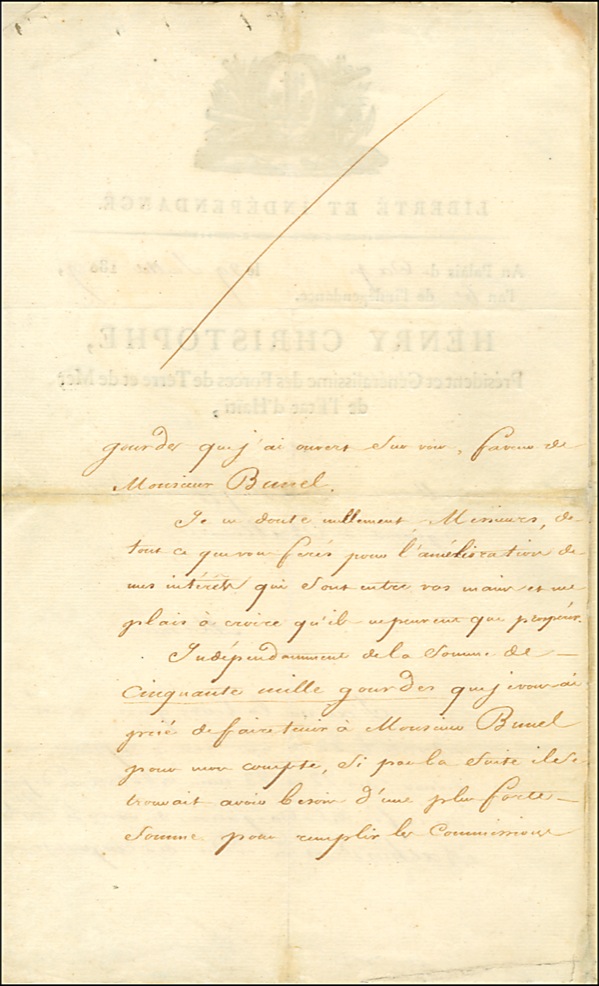 LIBERTÉ ET INDÉPENDANCE.
Au Palais du Cap le 29 180
l'an de l'indépendance.
HENRY CHRISTOPHE,
Président et Généralissime des Forces de Terre et de Mer
de l'État d'Haïti,
gourdes que j'ai ouvert sur vous, faveur de
Monsieur Bunel.
Je ne doute nullement, Messieurs, de
tout ce que vous ferés pour l'amélioration de
mes intérêts qui sont entre vos mains et me
plais à croire qu'ils ne peuvent que prospérer.
Indépendamment de la Somme de
cinquante mille gourdes que je vous ai
prié de faire tenir à Monsieur Bunel
pour mon compte, si par la suite il se
trouvait avoir besoin d'une plus forte
Somme pour remplir les Commissions